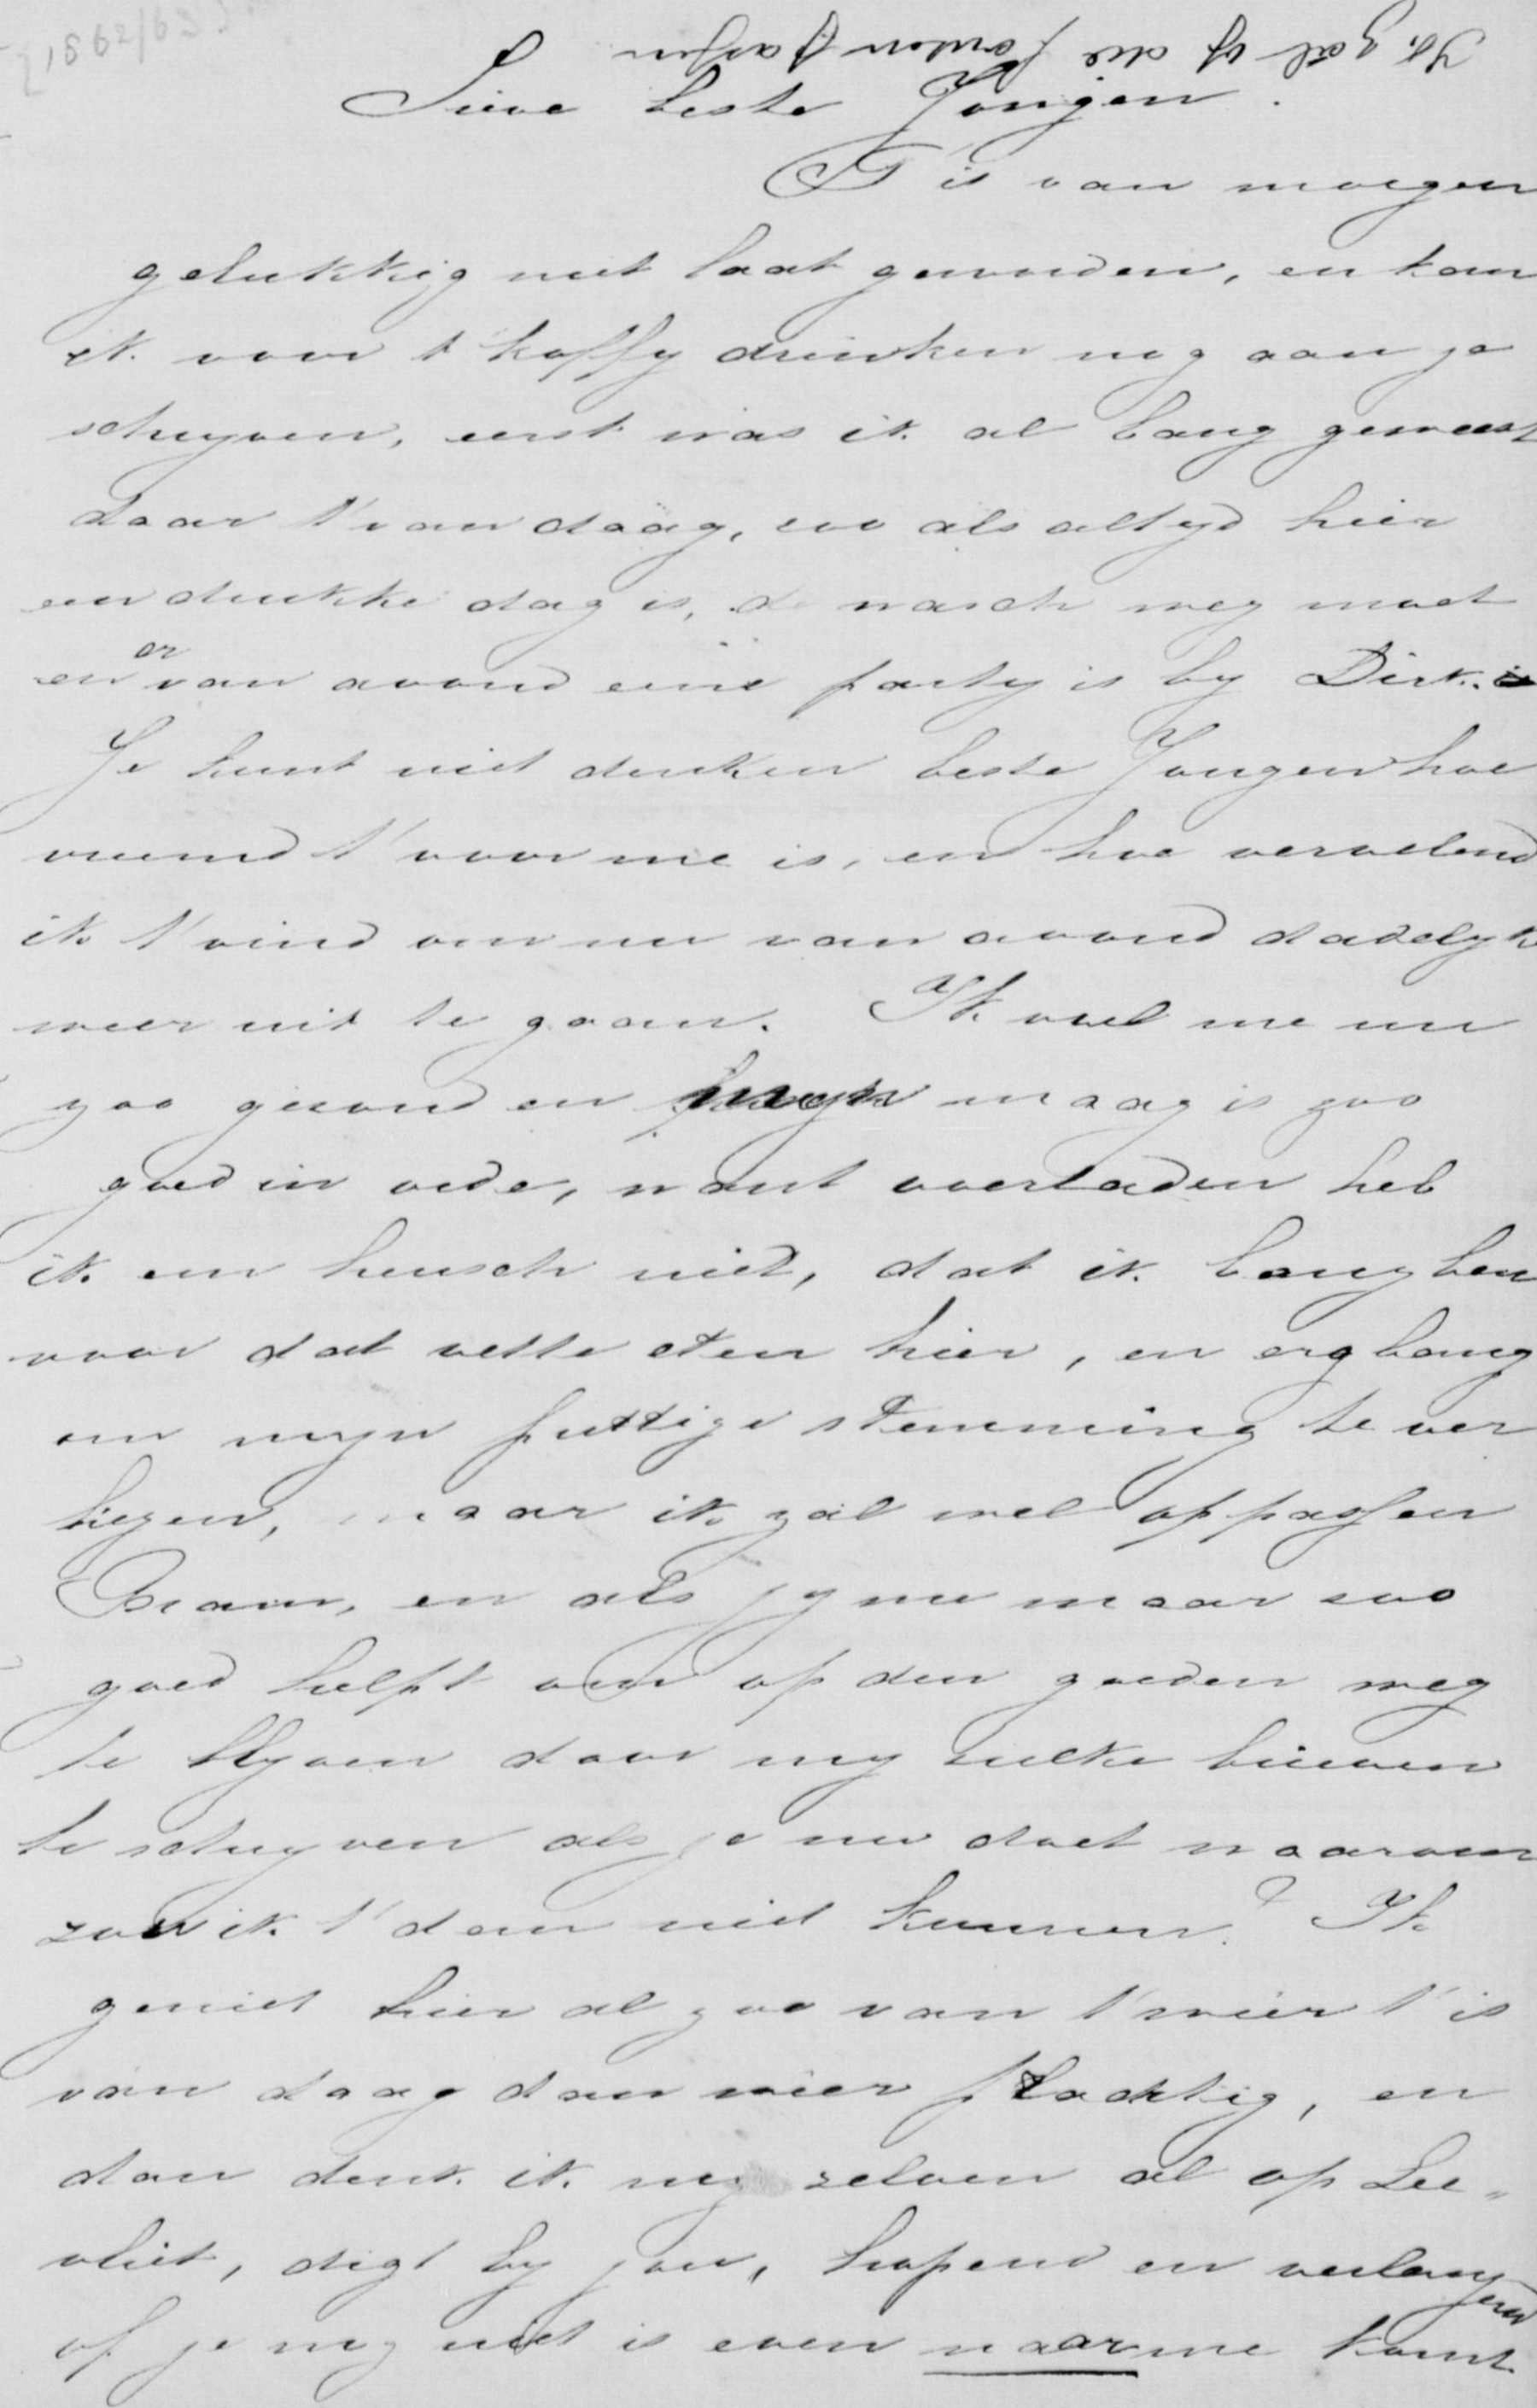 [1862/63]
Ik zal op die fouten passen
Lieve beste Jongen.
T is van morgen
gelukkig niet laat geworden, en kan
ik voor t koffy drinken nog aan je
schryven, eerst was ik al bang geweest
daar t' van daag, zoo als altyd hier
een drukke dag is, de wasch weg moet
en er van avond eene party is by Dirk.
Je kunt niet denken beste Jongen hoe
vreemd t' voor me is, en hoe vervelend
ik t' vind om nu van avond dadelyk
weer uit te gaan. Ik voel me nu
zoo gezond en myn maag is zoo
goed in orde, want overladen heb
ik em heusch niet, dat ik bang ben
voor dat vette eten hier, en erg bang
om myn prettige stemming te ver
liezen, maar ik zal wel oppassen
Bram, en als jy me maar zoo
goed helpt om op den goeden weg
te blyven door my zulke brieven
te schryven als je nu doet waarom
zou ik t' dan niet kunnen? Ik
geniet hier al zoo van t' weer t' is
van daag dan weer prachtig, en
dan denk ik my zelven al op Lee-
vliet, digt by jou, hopend en verlangend
of je nog niet is even naar me komt